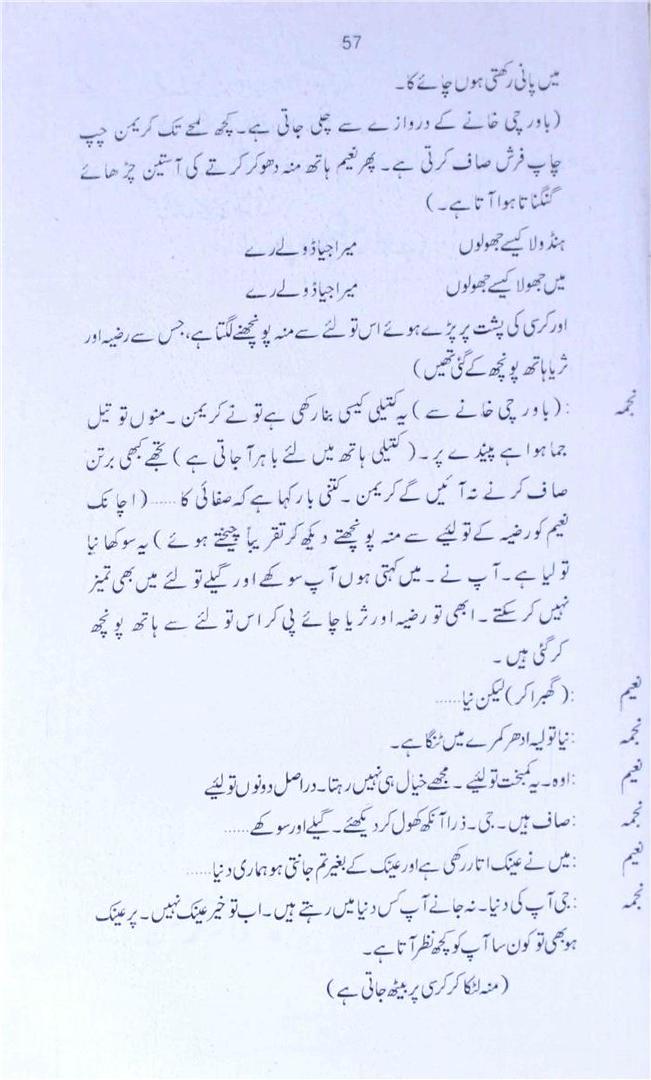 57
میں پانی رکھتی ہوں چائے کا۔
(باورچی خانے کے دروازے سے چلی جاتی ہے۔ کچھ لمحے تک کریمن چپ
چاپ فرش صاف کرتی ہے۔ پھر نعیم ہاتھ منہ دھو کر کرتے کی آستین چڑھائے
گنگناتا ہوا آتا ہے۔)
ہنڈولا کیسے جھولوں میرا جیا ڈولے رے
میں جھولا کیسے جھولوں میرا جیا ڈولے رے
اور کرسی کی پشت پر پڑے ہوئے اس تولئے سے منہ پونچھنے لگتا ہے، جس سے رضیہ اور
ثریا ہاتھ پونچھ کے گئی تھیں)
نجمہ :(باورچی خانے سے) یہ کیتلی کیسی بنا رکھی ہے تو نے کریمن۔ منوں تو تیل
جما ہوا ہے پیندے پر۔ (کیتلی ہاتھ میں لئے باہر آ جاتی ہے) تجھے کبھی برتن
صاف کرنے نہ آئیں گے کریمن۔ کتنی بار کہا ہے کہ صفائی کا ...... (اچانک
نعیم کو رضیہ کے تولیئے سے منہ پونچھتے دیکھ کر تقریباً چیختے ہوئے) یہ سوکھا نیا
تولیا ہے۔ آپ نے۔ میں کہتی ہوں آپ سوکھے اور گیلے تولئے میں بھی تمیز
نہیں کر سکتے۔ ابھی تو رضیہ اور ثریا چائے پی کر اس تولئے سے ہاتھ پونچھ
کر گئی ہیں۔
نعیم :(گھبرا کر) لیکن نیا......
نجمہ :نیا تولیہ ادھر کمرے میں ٹنگا ہے۔
نعیم :اوہ۔ یہ کمبخت تولیئے۔ مجھے خیال ہی نہیں رہتا۔ دراصل دونوں تولیئے
نجمہ :صاف ہیں۔ جی۔ ذرا آنکھ کھول کر دیکھئے۔ گیلے اور سوکھے......
نعیم :میں نے عینک اتار رکھی ہے اور عینک کے بغیر تم جانتی ہو ہماری دنیا......
نجمہ :جی آپ کی دنیا۔ نہ جانے آپ کس دنیا میں رہتے ہیں۔ اب تو خیر عینک نہیں۔ پر عینک
ہو بھی تو کون سا آپ کو کچھ نظر آتا ہے۔
(منہ لٹکا کر کرسی پر بیٹھ جاتی ہے)